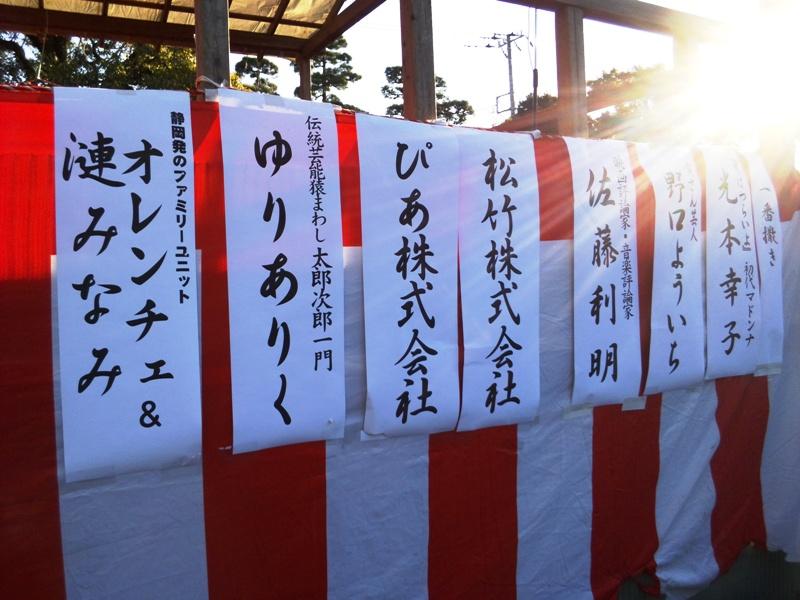 一番撒き
初代マドンナ
光本幸子
野口よういち
評論家・音楽評論家
佐藤利明
松竹株式会社
ぴあ株式会社
伝統芸能猿まわし 太郎次郎一門
ゆりありく
静岡発のファミリーユニット
オレンチェ&
漣みなみ